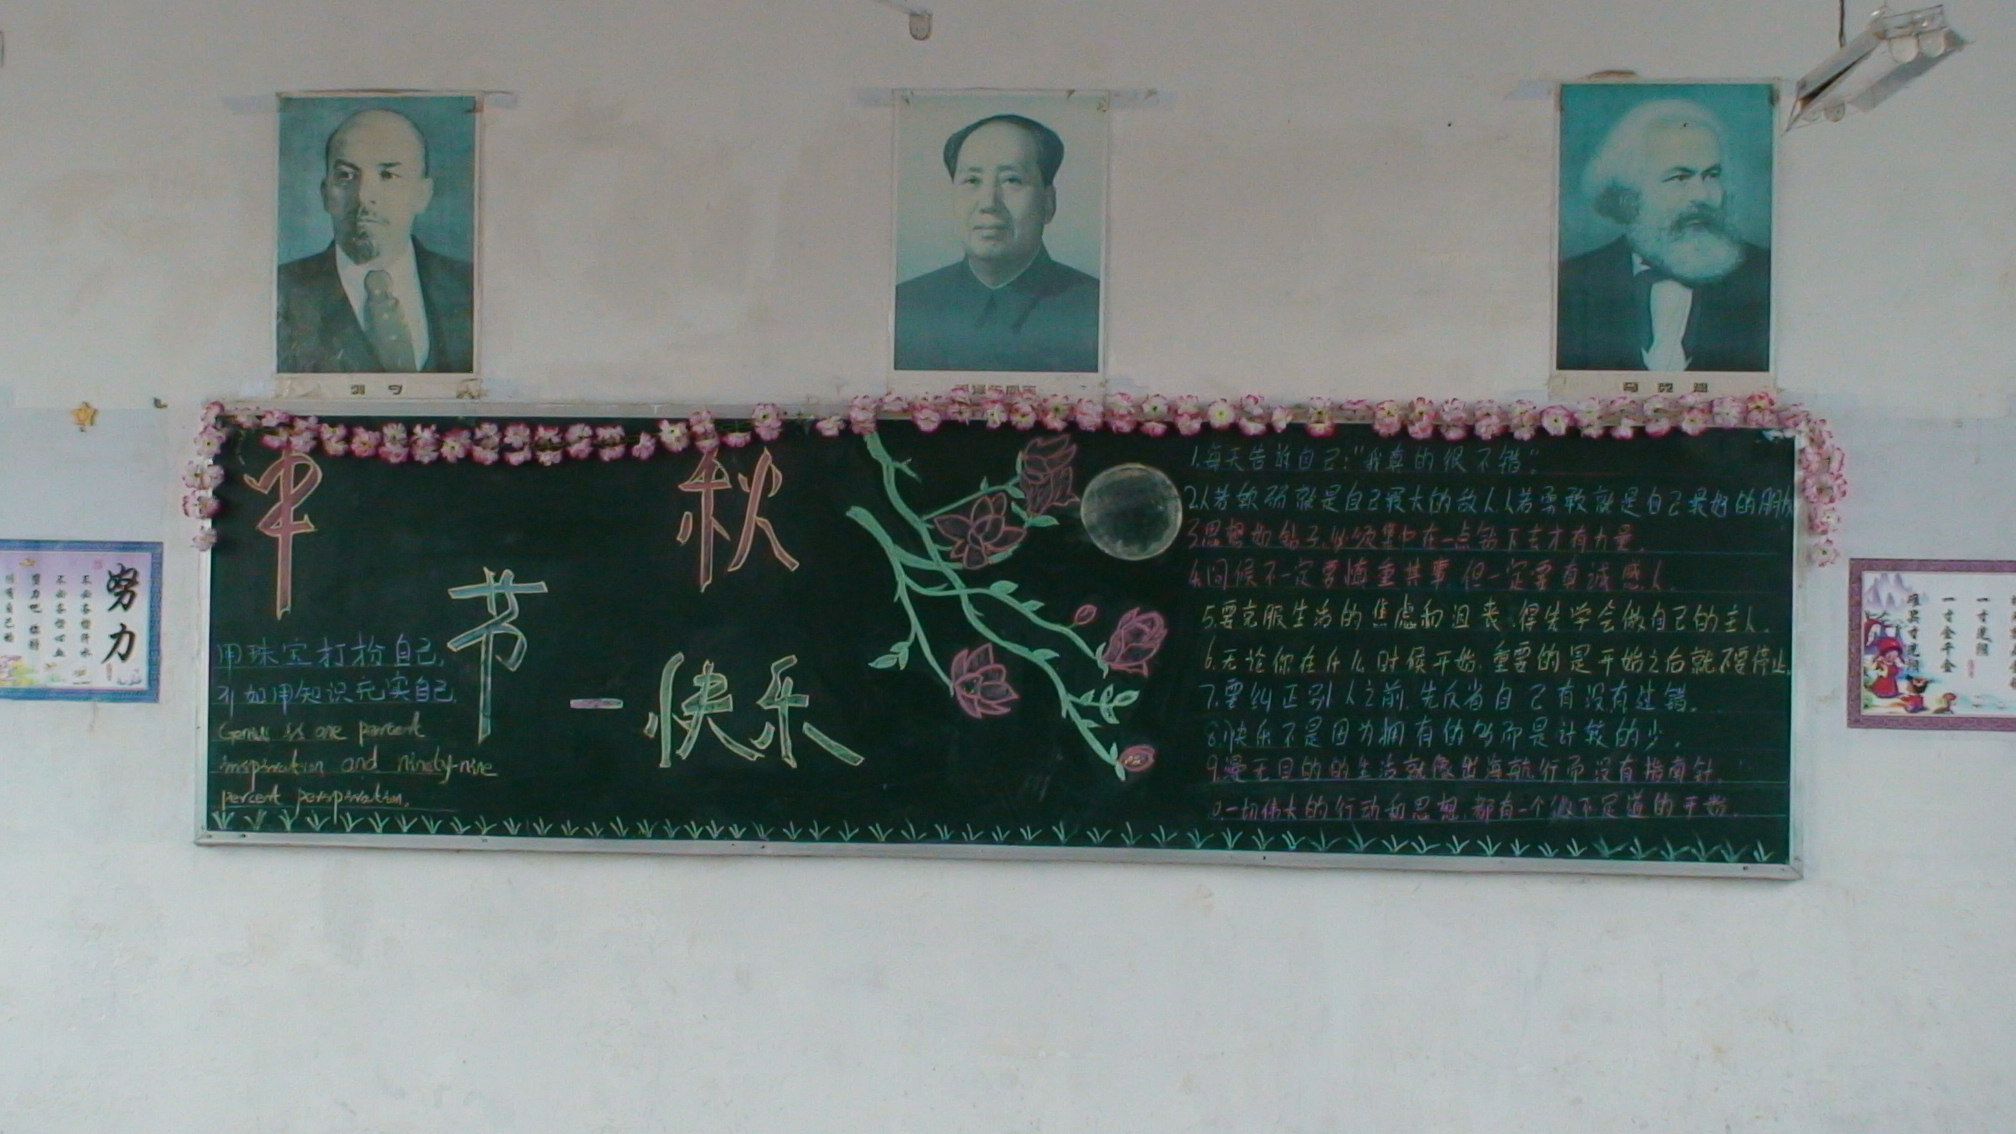 列宁
马克思
中秋
节
一快乐
用珠宝打扮自己,
不如用知识充实自己.
Genius is one percent
inspiration and ninety-nine
percent perspiration.
1.每天告诉自己:"我真的很不错".
2.人若软弱就是自己最大的敌人人若勇敢就是自己最好的朋友
3.思想如钻子,必须集中在一点钻下去才有力量.
4.问候不一定要慎重其事,但一定要真诚感人.
5.要克服生活的焦虑和沮丧,得先学会做自己的主人.
6.无论你在什么时候开始,重要的是开始之后就不要停止.
7.要纠正别人之前,先反省自己有没有过错.
8.快乐不是因为拥有的多而是计较的少.
9.漫无目的的生活就像出海航行而没有指南针.
0.一切伟大的行动和思想,都有一个微不足道的开始.
努力
不必各啬汗水
不必各啬心血
努力吧
一寸光阴
一寸金千金